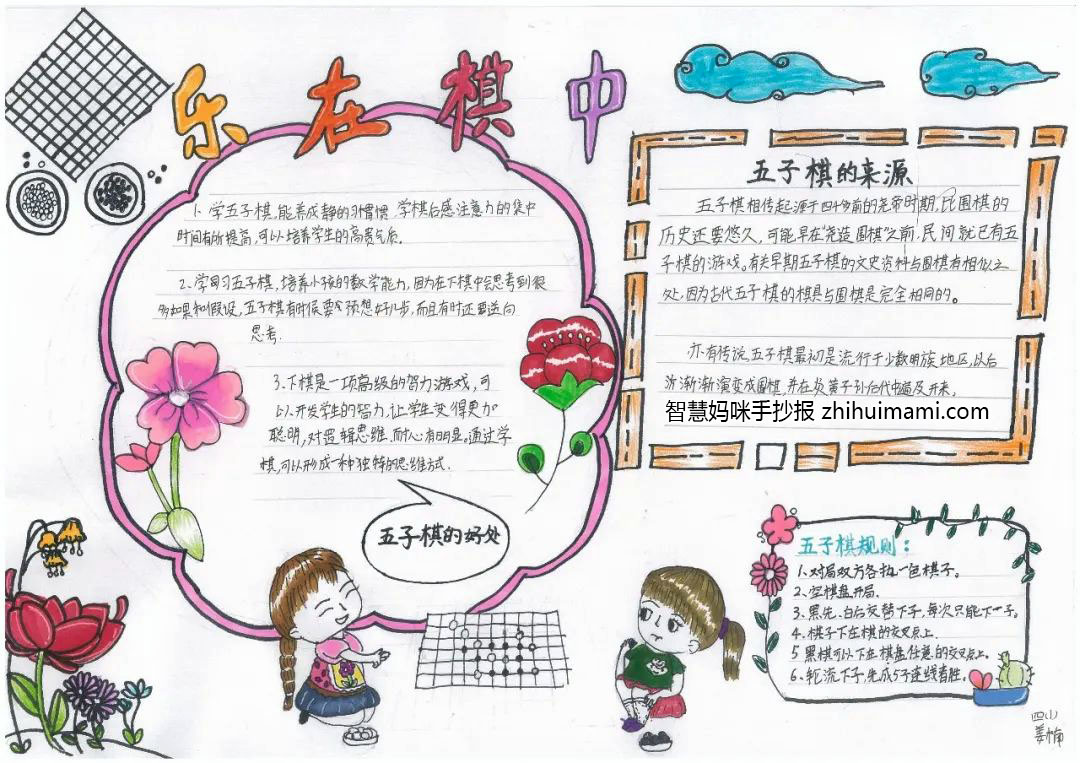 乐在棋中
1、学五子棋,能养成静的习惯惯,学棋后感注意力的集中
时间有所提高,可以培养学生的高贵气质。
2、学习五子棋,培养小孩的数学能力,因为在下棋中会思考到很
多如果和假设,五子棋有时候要预想好几步,而且有时还要逆向
思考.
3、下棋是一项高级的智力游戏,可
以开发学生的智力,让学生变得更加
聪明,对逻辑思维、耐心有明显。通过学
棋,可以形成一种独特的思维方式.
五子棋的好处
五子棋的来源
五子棋相传起源于四千多前的尧帝时期,比围棋的
历史还要悠久,可能早在尧造围棋之前,民间就已有五
子棋的游戏。有关早期五子棋的文史资料与围棋有相似之
处,因为古代五子棋的棋具与围棋是完全相同的。
亦有传说,五子棋最初是流行于少数明族地区,以后
渐渐演变成围棋,并在炎黄子孙后代中遍及开来。
智慧妈咪手抄报 zhihuimami.com
五子棋规则:
1、对局双方各执一色棋子。
2、空棋盘开局.
3、黑先、白后交替下子,每次只能下一子。
4、棋子下在棋的交叉点上.
5 黑棋可以下在棋盘任意的交叉点上。
6、轮流下子,先成5子连线者胜。
四小